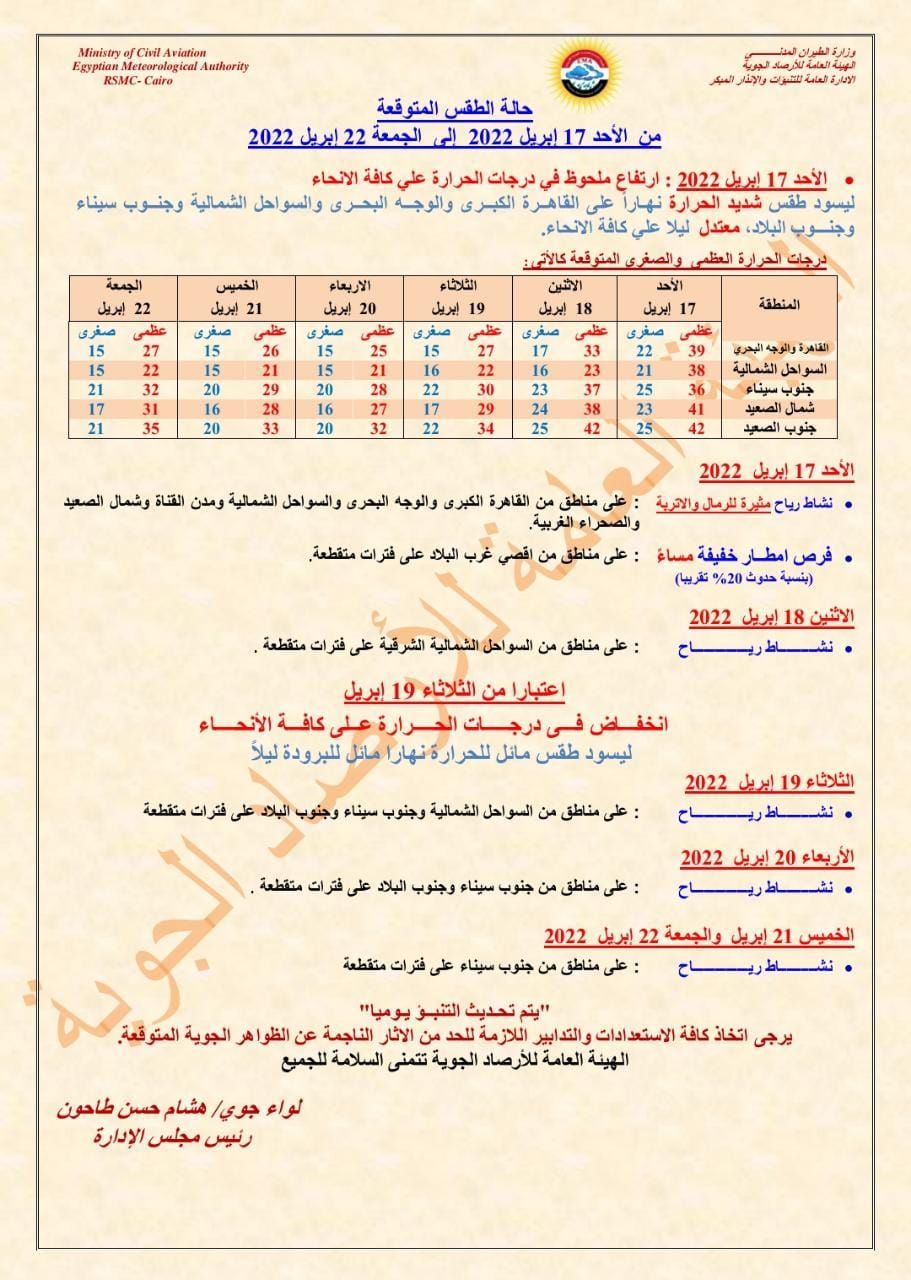 Ministry of Civil Aviation
Egyptian Meteorological Authority
RSMC- Cairo
وزارة الطيران المدنـــــــي
الهيئة العامة للأرصاد الجوية
الادارة العامة للتنبؤات والإنذار المبكر
حالة الطقس المتوقعة
من الأحد 17 إبريل 2022 إلى الجمعة 22 إبريل 2022
• الأحد 17 إبريل 2022 : ارتفاع ملحوظ في درجات الحرارة علي كافة الانحاء
ليسود طقس شديد الحرارة نهـاراً على القاهـرة الكبـرى والوجـه البحـرى والسواحل الشمالية وجنـوب سيناء
وجنـــوب البلاد، معتدل ليلا علي كافة الانحاء.
درجات الحرارة العظمى والصغرى المتوقعة كالأتى:
المنطقة الأحد 17 إبريل الاثنين 18 إبريل الثلاثاء 19 إبريل الاربعاء 20 إبريل الخميس 21 إبريل الجمعة 22 إبريل
عظمى صغرى عظمى صغرى عظمى صغرى عظمى صغرى عظمى صغرى عظمى صغرى
القاهرة والوجه البحري 39 22 33 17 27 15 25 15 26 15 27 15
السواحل الشمالية 38 21 23 16 22 16 21 15 21 15 22 15
جنوب سيناء 36 25 37 23 30 22 28 20 29 20 32 21
شمال الصعيد 41 23 38 24 29 17 27 16 28 16 31 17
جنوب الصعيد 42 25 42 25 34 22 32 20 33 20 35 21
الأحد 17 إبريل 2022
• نشاط رياح مثيرة للرمال والاتربة : على مناطق من القاهرة الكبرى والوجه البحرى والسواحل الشمالية ومدن القناة وشمال الصعيد
والصحراء الغربية.
• فرص امطــار خفيفة مساءً : على مناطق من اقصي غرب البلاد على فترات متقطعة.
(بنسبة حدوث 20% تقريبا)
الاثنين 18 إبريل 2022
• نشـــــــاط ريـــــــــــــاح : على مناطق من السواحل الشمالية الشرقية على فترات متقطعة .
اعتبارا من الثلاثاء 19 إبريل
انخفــاض فــى درجــــات الحــرارة علــى كافــة الأنحــاء
ليسود طقس مائل للحرارة نهارا مائل للبرودة ليلاً
الثلاثاء 19 إبريل 2022
• نشـــــــاط ريـــــــــــــاح : على مناطق من السواحل الشمالية وجنوب سيناء وجنوب البلاد على فترات متقطعة
الأربعاء 20 إبريل 2022
• نشـــــــاط ريـــــــــــــاح : على مناطق من جنوب سيناء وجنوب البلاد على فترات متقطعة .
الخميس 21 إبريل والجمعة 22 إبريل 2022
• نشـــــــاط ريـــــــــــــاح : على مناطق من جنوب سيناء على فترات متقطعة
"يتم تحـديث التنبــؤ يـوميا"
يرجى اتخاذ كافة الاستعدادات والتدابير اللازمة للحد من الاثار الناجمة عن الظواهر الجوية المتوقعة.
الهيئة العامة للأرصاد الجوية تتمنى السلامة للجميع
لواء جوي/ هشام حسن طاحون
رئيس مجلس الإدارة
الهيئة العامة للأرصاد الجوية